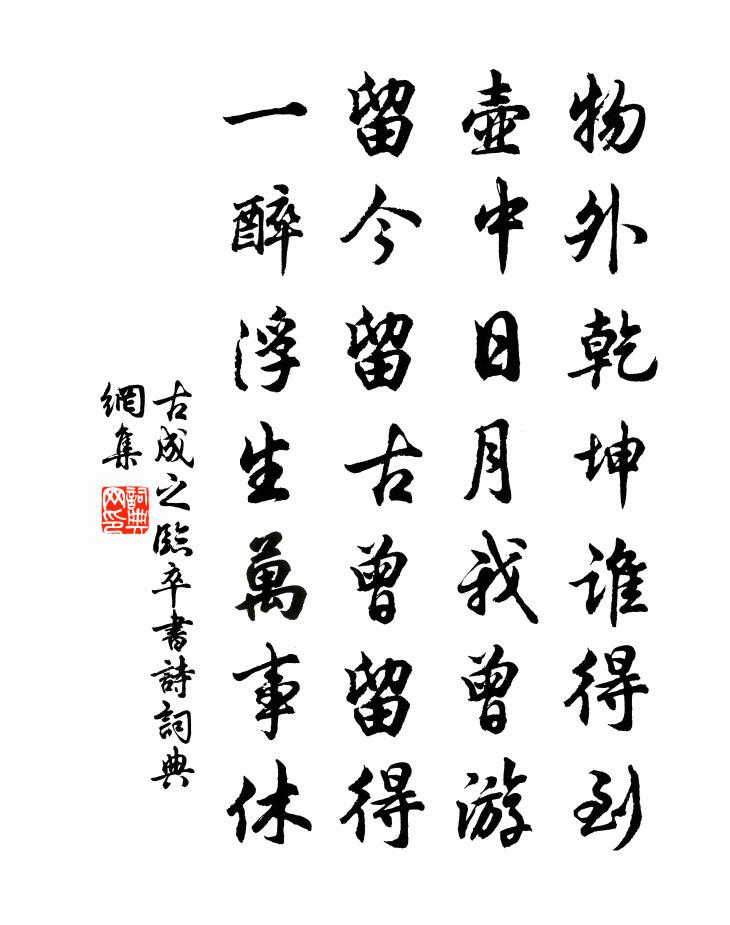 物外乾坤谁得到
壶中日月我曾游
留今留古曾留得
一醉浮生萬事休
古成之臨卒書詩詞典
網集
詞典
网印